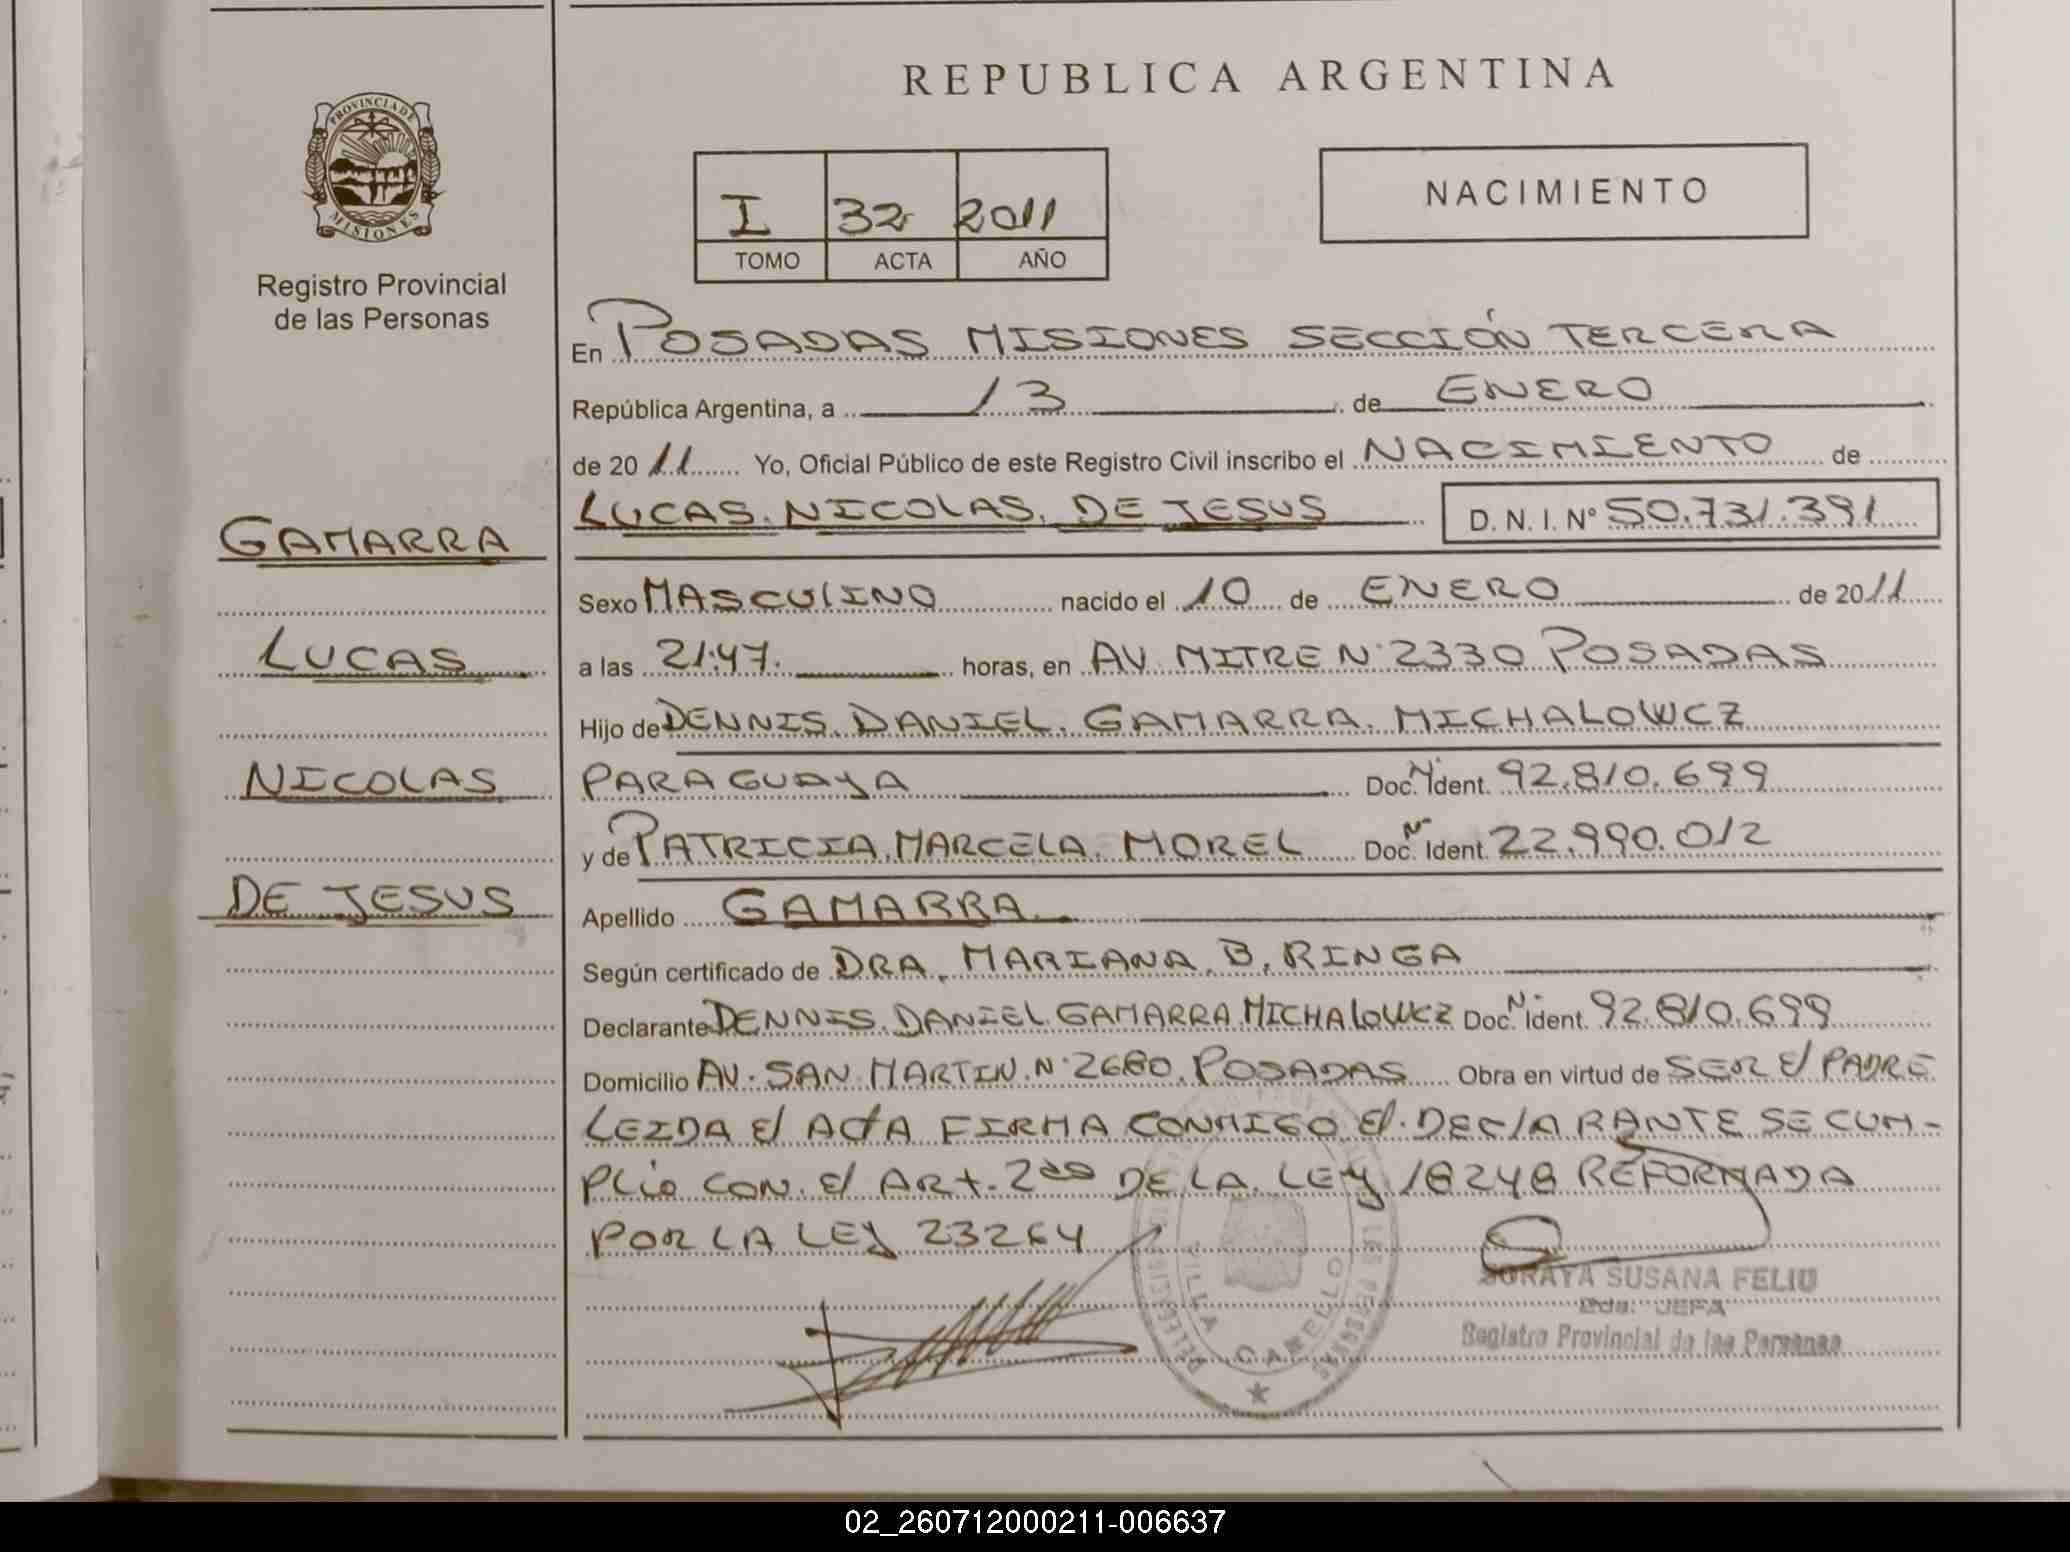 REPUBLICA ARGENTINA
PROVINCIA DE
MISIONES
Registro Provincial
de las Personas
I 32 2011
TOMO ACTA AÑO
NACIMIENTO
En POSADAS MISIONES SECCIÓN TERCERA
República Argentina, a 13 de ENERO
de 2011 Yo, Oficial Público de este Registro Civil inscribo el NACIMIENTO de
LUCAS. NICOLAS. DE JESUS D. N. I. Nº 50.731.391
GAMARRA
LUCAS
NICOLAS
DE JESUS
Sexo MASCULINO nacido el 10 de ENERO de 2011
a las 21:47. horas, en AV. MITRE N° 2330 POSADAS
Hijo de DENNIS. DANIEL. GAMARRA. MICHALOWCZ
PARAGUAYA Doc. N° Ident. 92.810.699
y de PATRICIA. MARCELA. MOREL Doc. N° Ident. 22.990.012
Apellido GAMARRA
Según certificado de DRA. MARIANA. B. RINGA
Declarante DENNIS. DANIEL. GAMARRA. MICHALOWCZ Doc. N° Ident. 92.810.699
Domicilio AV. SAN MARTIN. N° 2680. POSADAS Obra en virtud de SER El PADRE
LEIDA El ActA FIRMA CONMIGO El. DEClARANTE SE CUM-
PLio CON. El ARt. 2do DE LA LEY 18248 REFORMADA
POR LA LEY 23264
VILLA CABELLO
SORAYA SUSANA FELIU
JEFA
Registro Provincial de las Personas
02_260712000211-006637